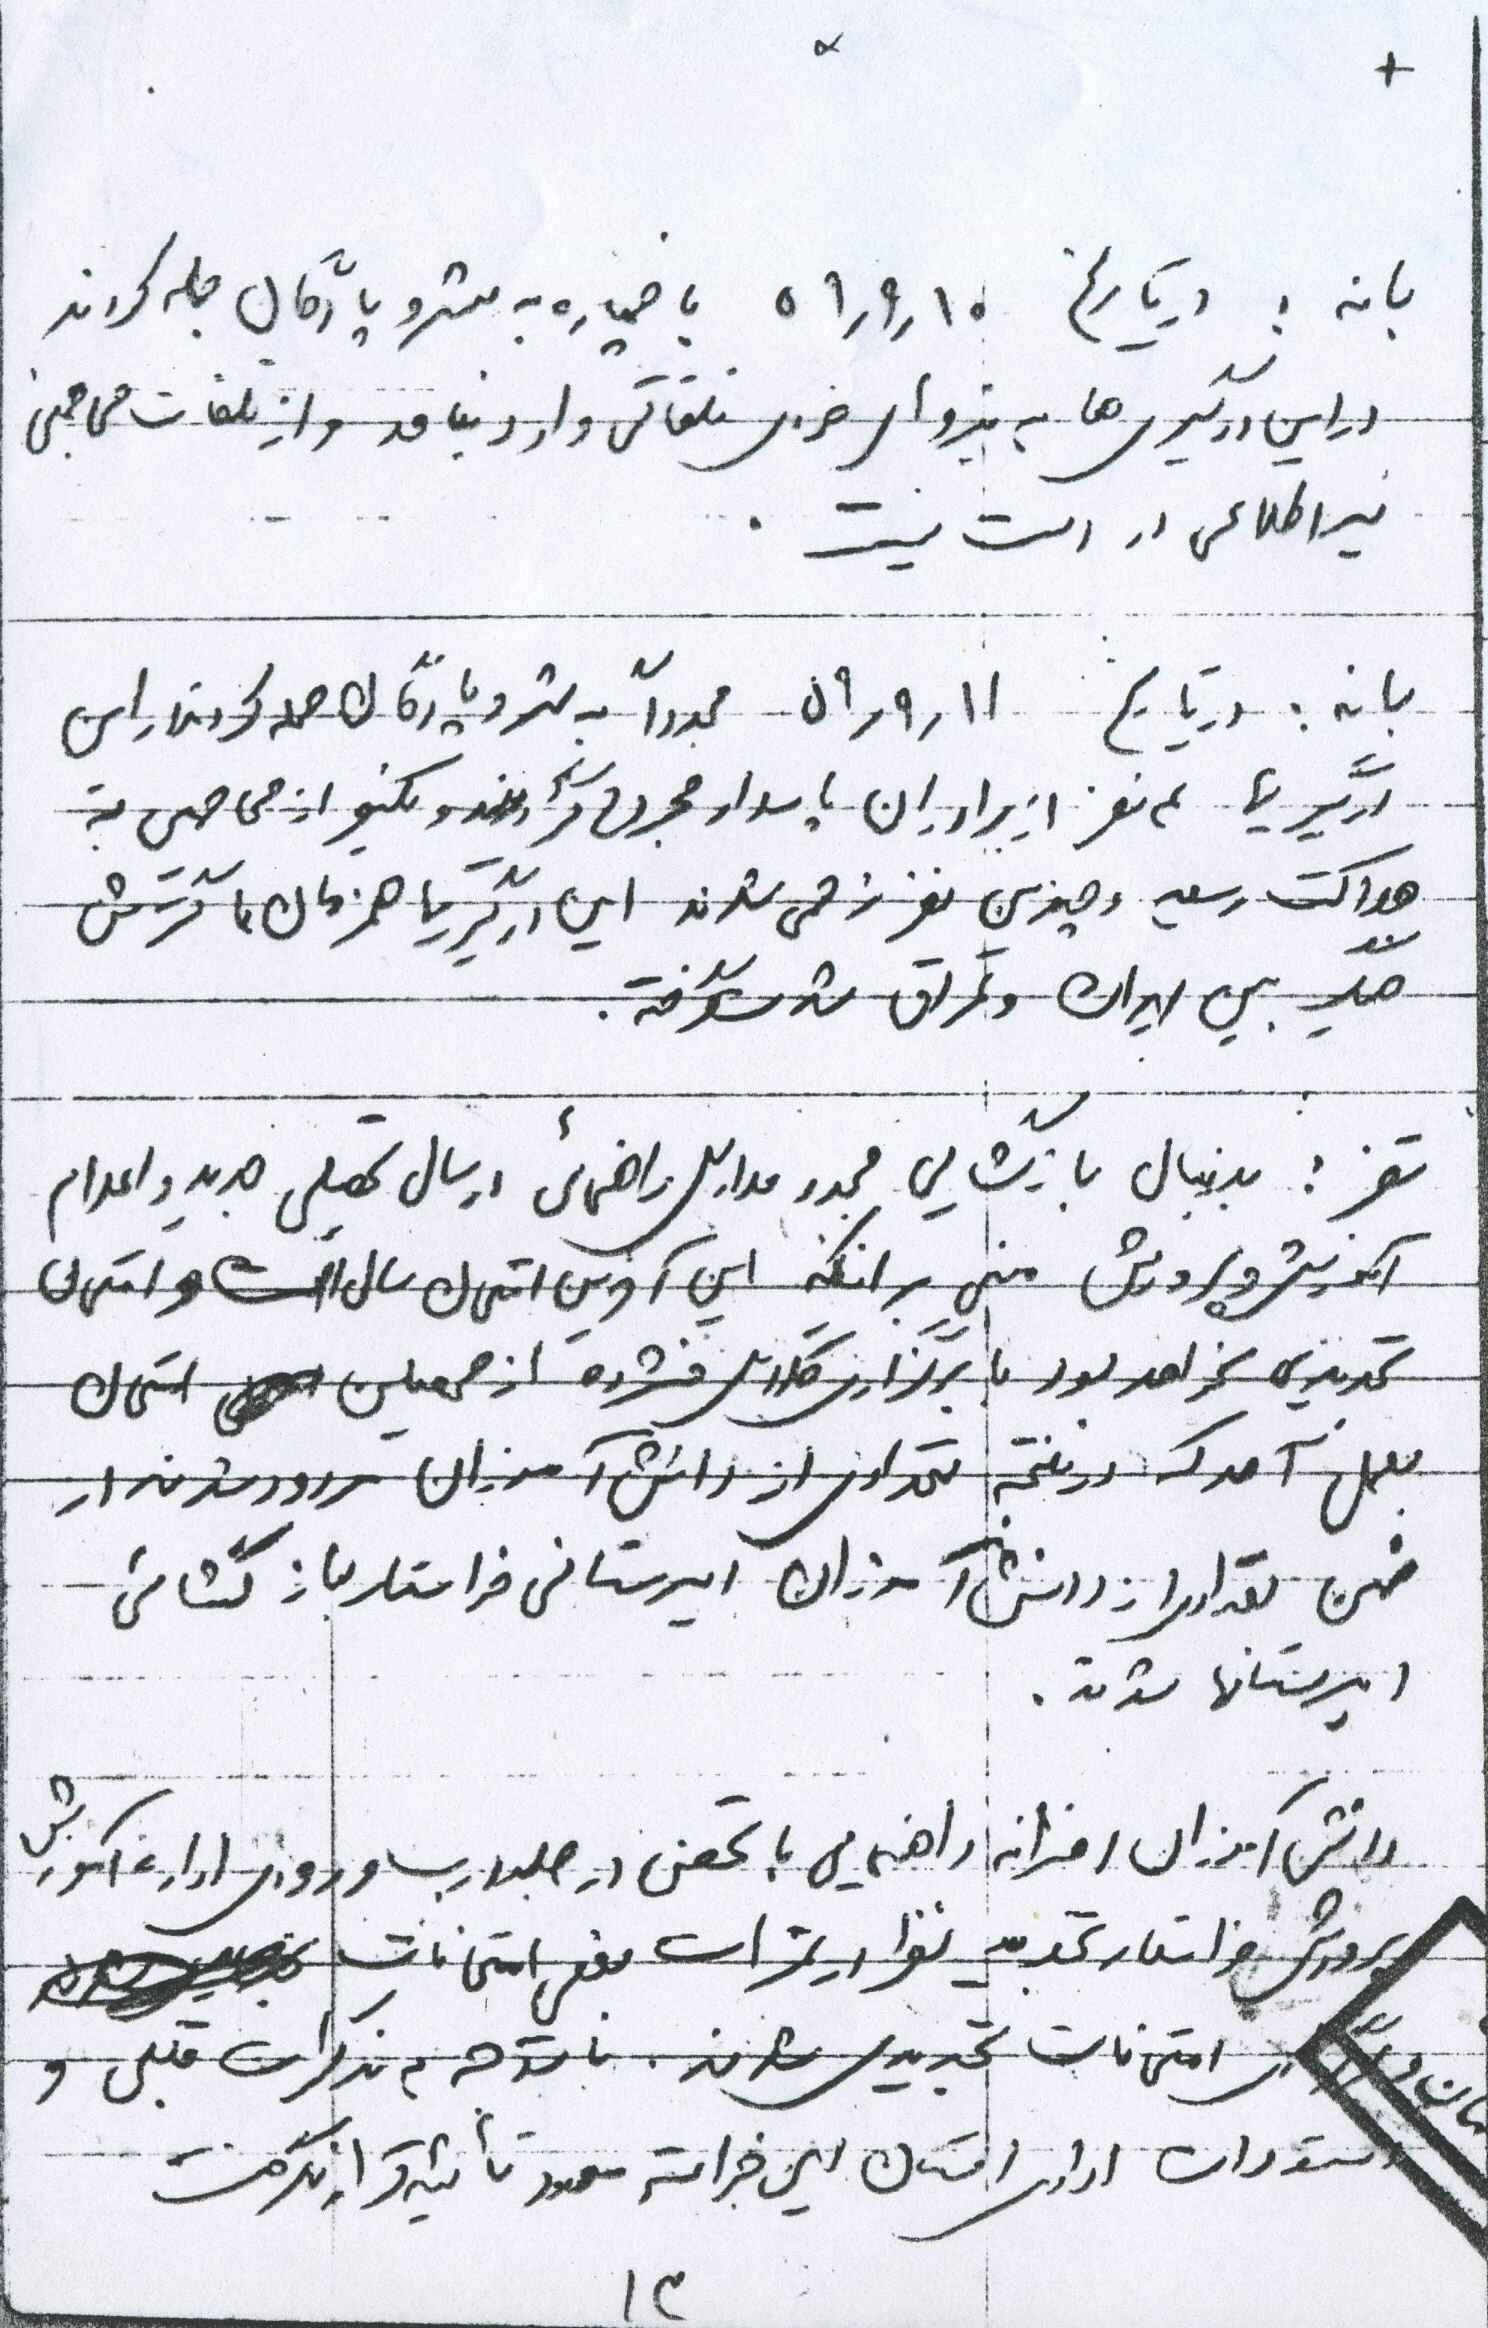 +
بانه : در تاریخ ۵۹٫۹٫۱۰ با خمپاره به شهر و پادگان حمله کردند
در این درگیری ها به نیروهای خودی تلفاتی وارد نیامد و از تلفات مهاجمین
نیز اطلاعی در دست نیست .
بانه : در تاریخ ۵۹٫۹٫۱۱ مجدداً به شهر و پادگان حمله کردند در این
درگیریها ۲ نفر از برادران پاسدار مجروح گردیدند و یکنفر از مهاجمین به
هلاکت رسید و چندین نفر زخمی شدند این درگیریها همزمان با گسترش
جنگ بین ایران و عراق شدت گرفته .
سقز : بدنبال بازگشایی مجدد مدارس راهنمائی در سال تحصیلی جدید و اعلام
آموزش و پرورش مبنی بر انکه این آخرین امتحان سال است و امتحان
تجدیدی نخواهد بود با برگزاری کلاس فشرده از محصلین امتحان
بعمل آمد که در نتیجه تعدادی از دانش آموزان مردود شدند در
ضمن تعدادی از دانش آموزان دبیرستانی خواستار بازگشائی
دبیرستانها شدند .
دانش آموزان دخترانه راهنمایی با تحصن در جلو درب ورودی اداره آموزش
پرورش خواستار تجدید نظر در نمرات بعضی امتحانات
امتحانات تجدیدی شدند . با توجه به تذکرات قبلی و
دستورات اداری استان این خواسته مورد تأئید قرار نگرفت
۱۳